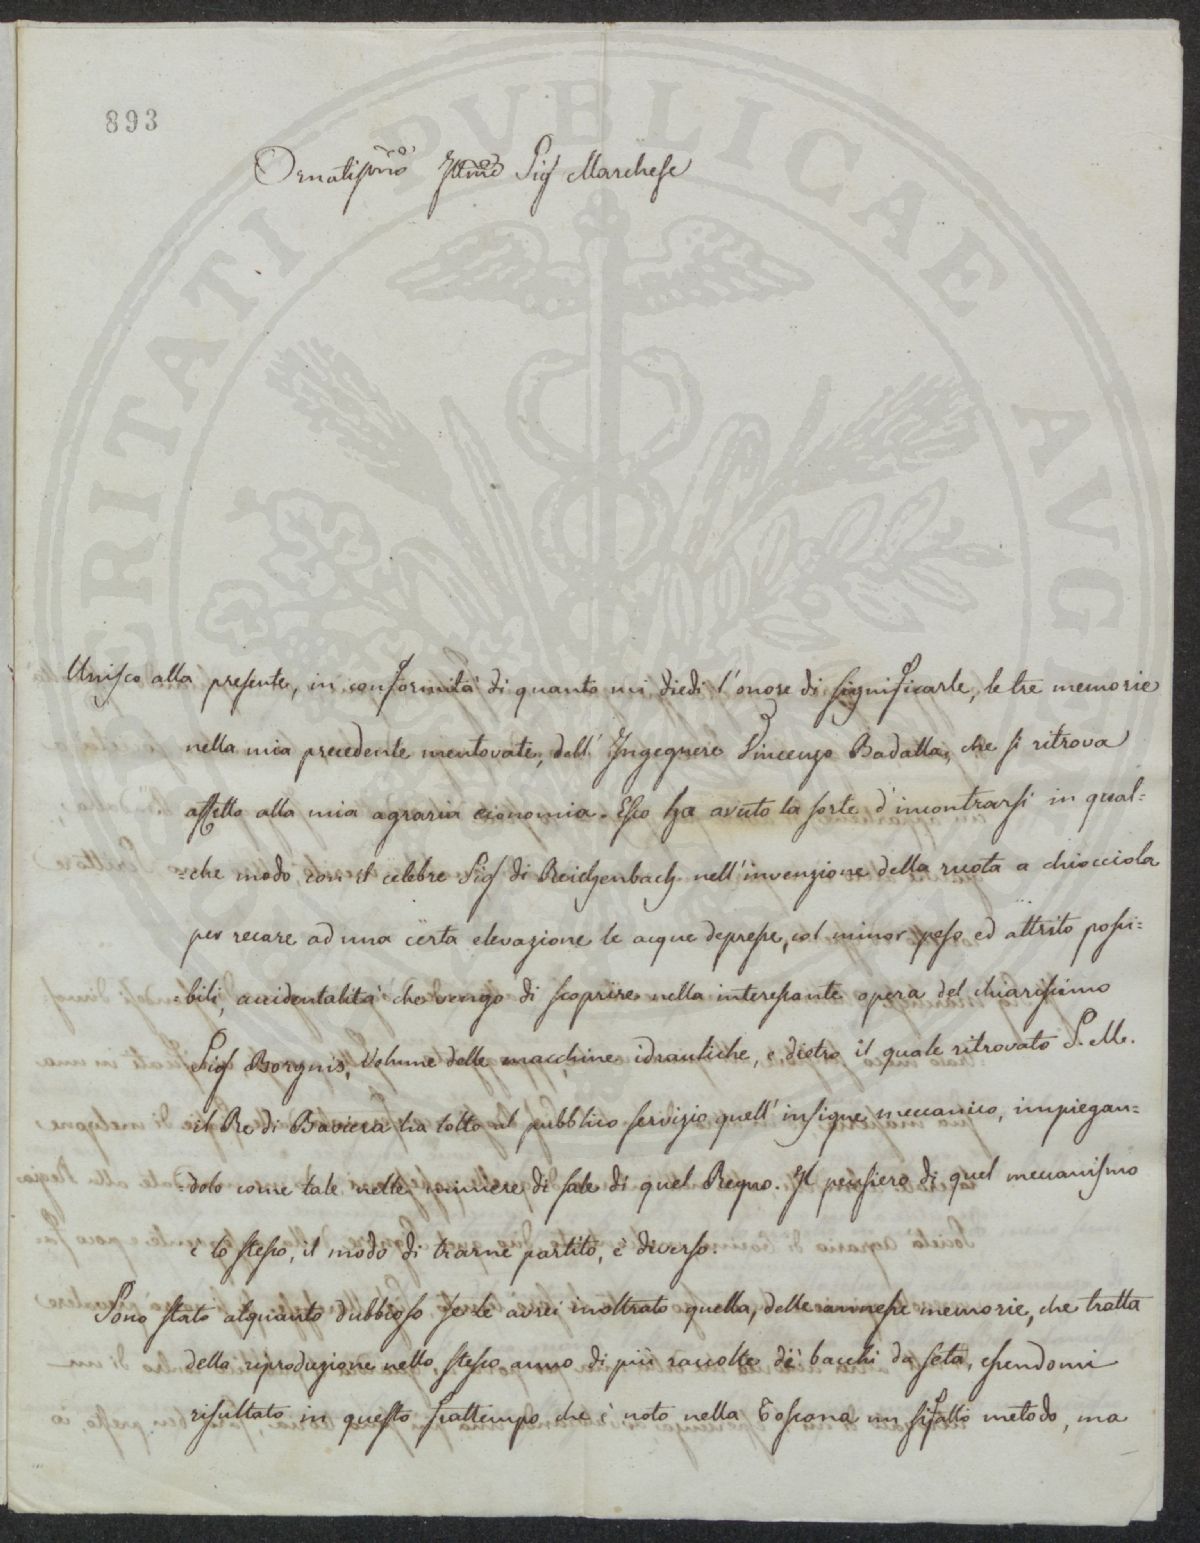 893
Ornatis.mo Ill.mo Sig Marchese
Unisco alla presente, in conformità di quanto mi diedi l'onore di significarle, le tre memorie
nella mia precedente mentovate, dell' Ingegnere Vincenzo Badalla, che si ritrova
affetto alla mia agraria economia. Esso ha avuto la sorte d'incontrarsi in qual=
=che modo con il celebre Sig di Reichenbach nell'invenzione della ruota a chiocciola
per recare ad una certa elevazione le acque depresse, col minor peso ed attrito possi=
=bili, accidentalità che vengo di scoprire nella interessante opera del chiarissimo
Sig Borgnis, Volume delle macchine idrauliche, e dietro il quale ritrovato S. M.
il Re di Baviera ha tolto al pubblico servizio quell' insigne meccanico, impiegan=
=dolo come tale nelle miniere di sale di quel Regno. Il pensiero di quel meccanismo
è lo stesso, il modo di trarne partito, è diverso.
Sono stato alquanto dubbioso se le avrei inoltrato quella, delle annesse memorie, che tratta
della riproduzione nello stesso anno di più raccolte dè bacchi da seta, essendomi
risultato in questo frattempo che è noto nella Toscana un sifatto metodo, ma
VERITATI PUBLICAE AUG